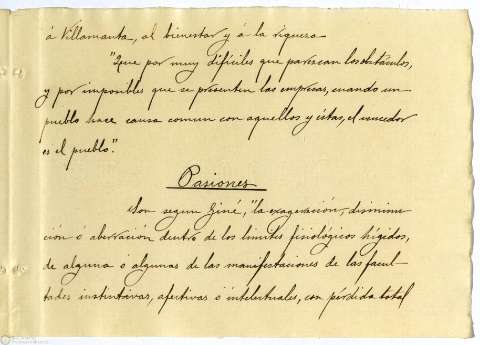 á Villamanta, al bienestar y á la riqueza
"Que por muy difíciles que parezcan los obstáculos,
y por imposibles que se presenten las empresas, cuando un
pueblo hace causa comun con aquellos y éstas, el vencedor
es el pueblo".
Pasiones
Son segun Giné, "la exageración, diminu-
ción ó aberración dentro de los limites fisiológicos hígidos,
de alguna ó algunas de las manifestaciones de las facul-
tades instintivas, afectivas ó intelectuales, con pérdida total